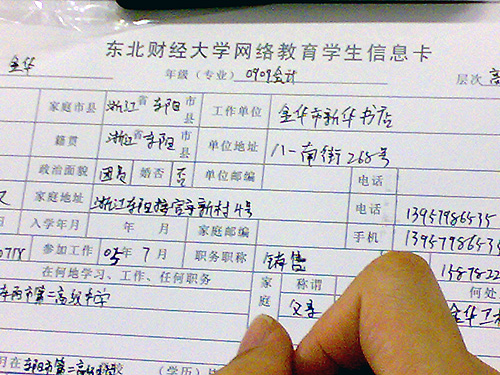 东北财经大学网络教育学生信息卡
金华 年级（专业）0909会计 层次 高
家庭市县 浙江省东阳市县 工作单位 金华市新华书店
籍贯 浙江省东阳市县 单位地址 八一南街268号
政治面貌 团员 婚否 否 单位邮编 电话
家庭地址 浙江东阳 新村4号 电话 13957986535
入学年月 年 月 家庭邮编 手机 1395798653
0718 参加工作 05年7月 职务职称 销售 1587822
在何地学习、工作、任何职务 家庭 称谓 何处
东阳市第二高级中学 父亲 金华
月在东阳市第二高级 学校 （学历）